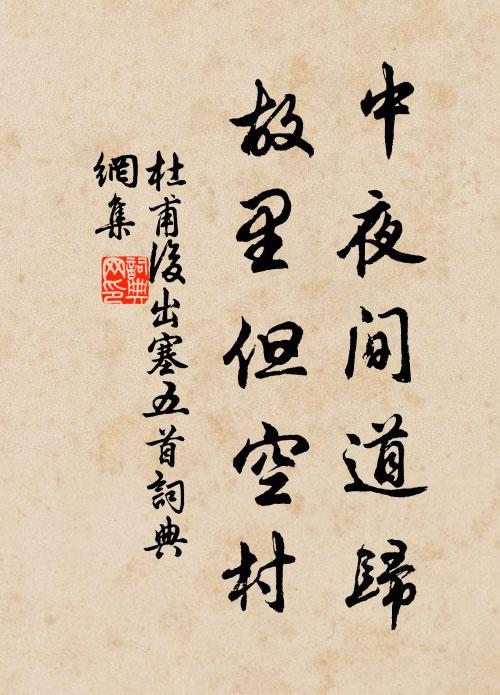 中夜間道歸
故里但空村
杜甫後出塞五首詞典
網集
詞典
网印